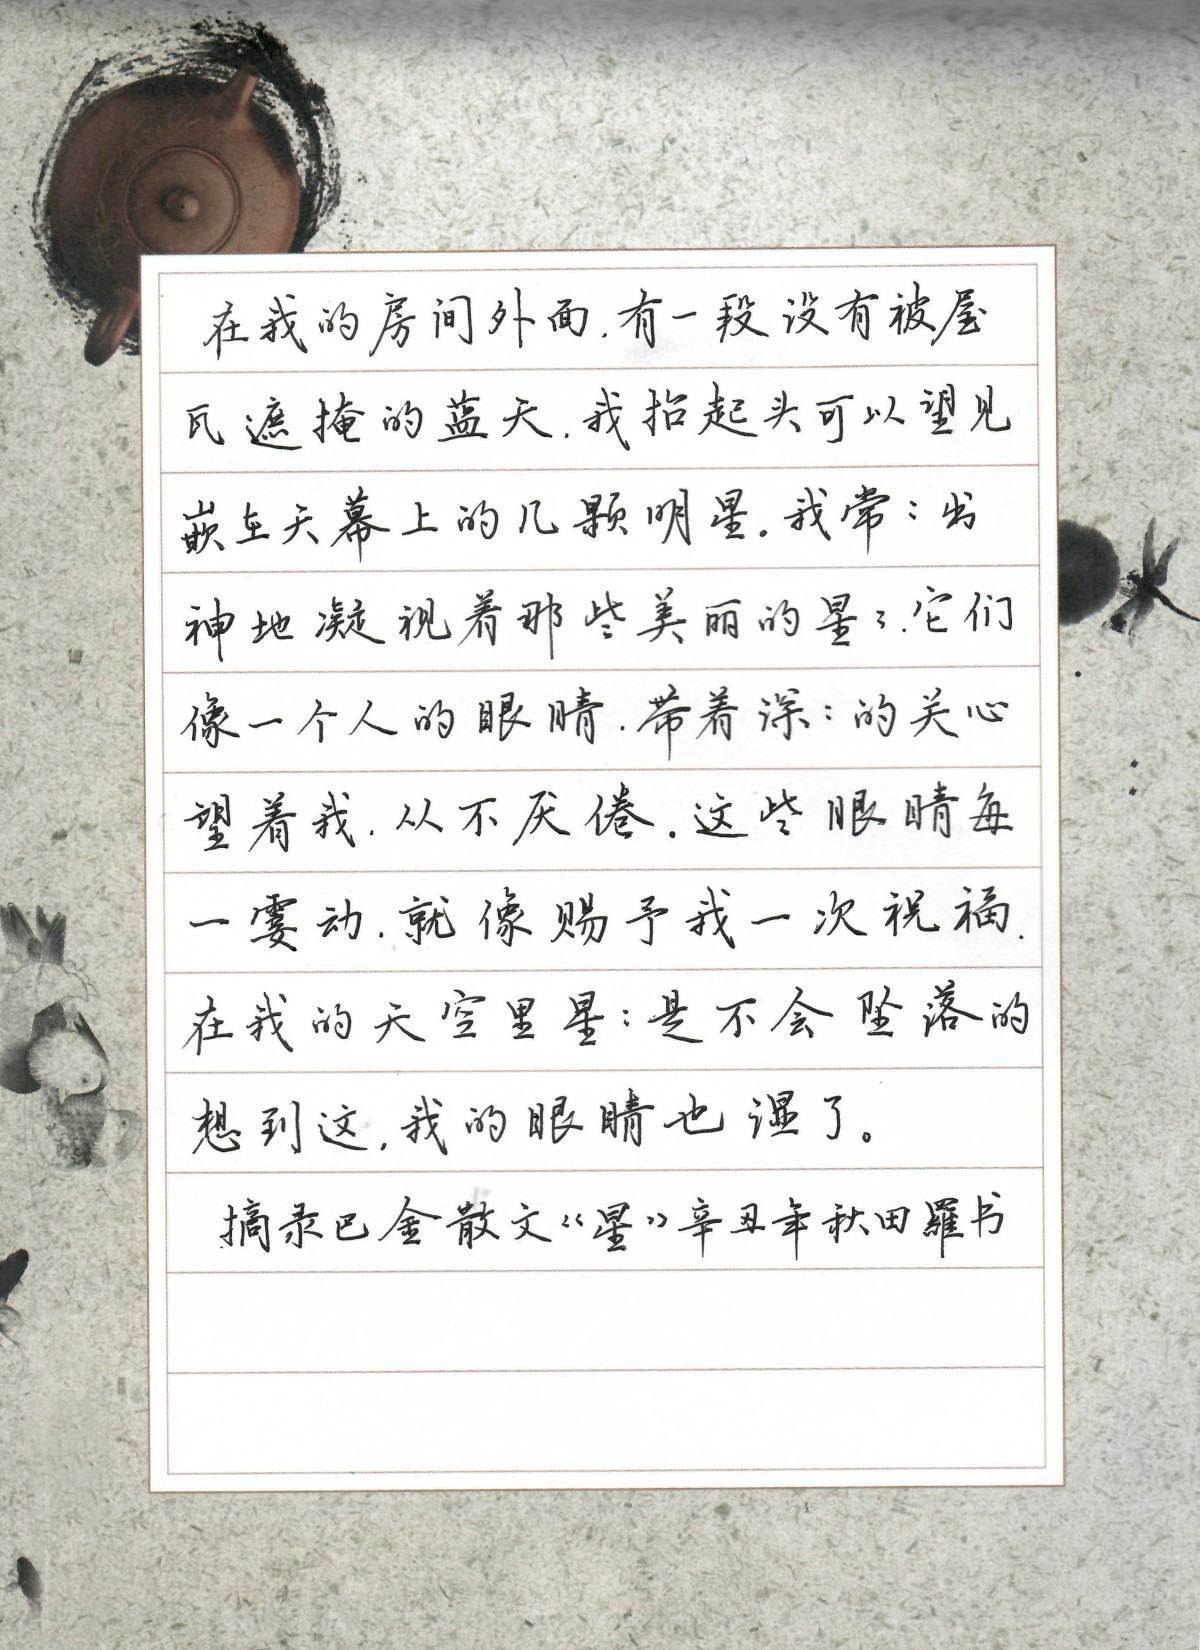 在我的房间外面.有一段没有被屋
瓦遮掩的蓝天.我抬起头可以望见
嵌在天幕上的几颗明星。我常:出
神地凝视着那些美丽的星:.它们
像一个人的眼睛.带着深:的关心
望着我.从不厌倦.这些眼睛每
一霎动.就像赐予我一次祝福.
在我的天空里星:是不会坠落的
想到这,我的眼睛也湿了。
摘录巴金散文《星》辛丑年秋田羅书